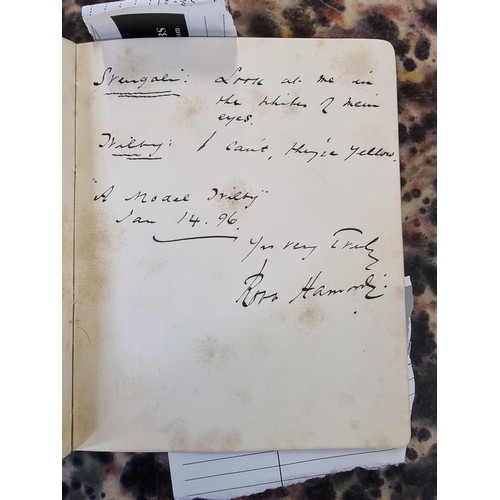 Svengali: Look at me in
the whites of mein
eyes.
Trilby: I can't, they're yellow.
"A Model Trilby"
Jan 14. 96.
Yrs very Truly
Rosa